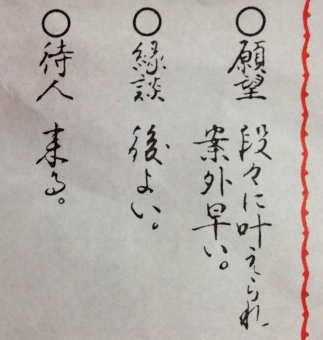 ○願望 段々に叶えられ
案外早い。
○縁談 後よい。
○待人 来る。